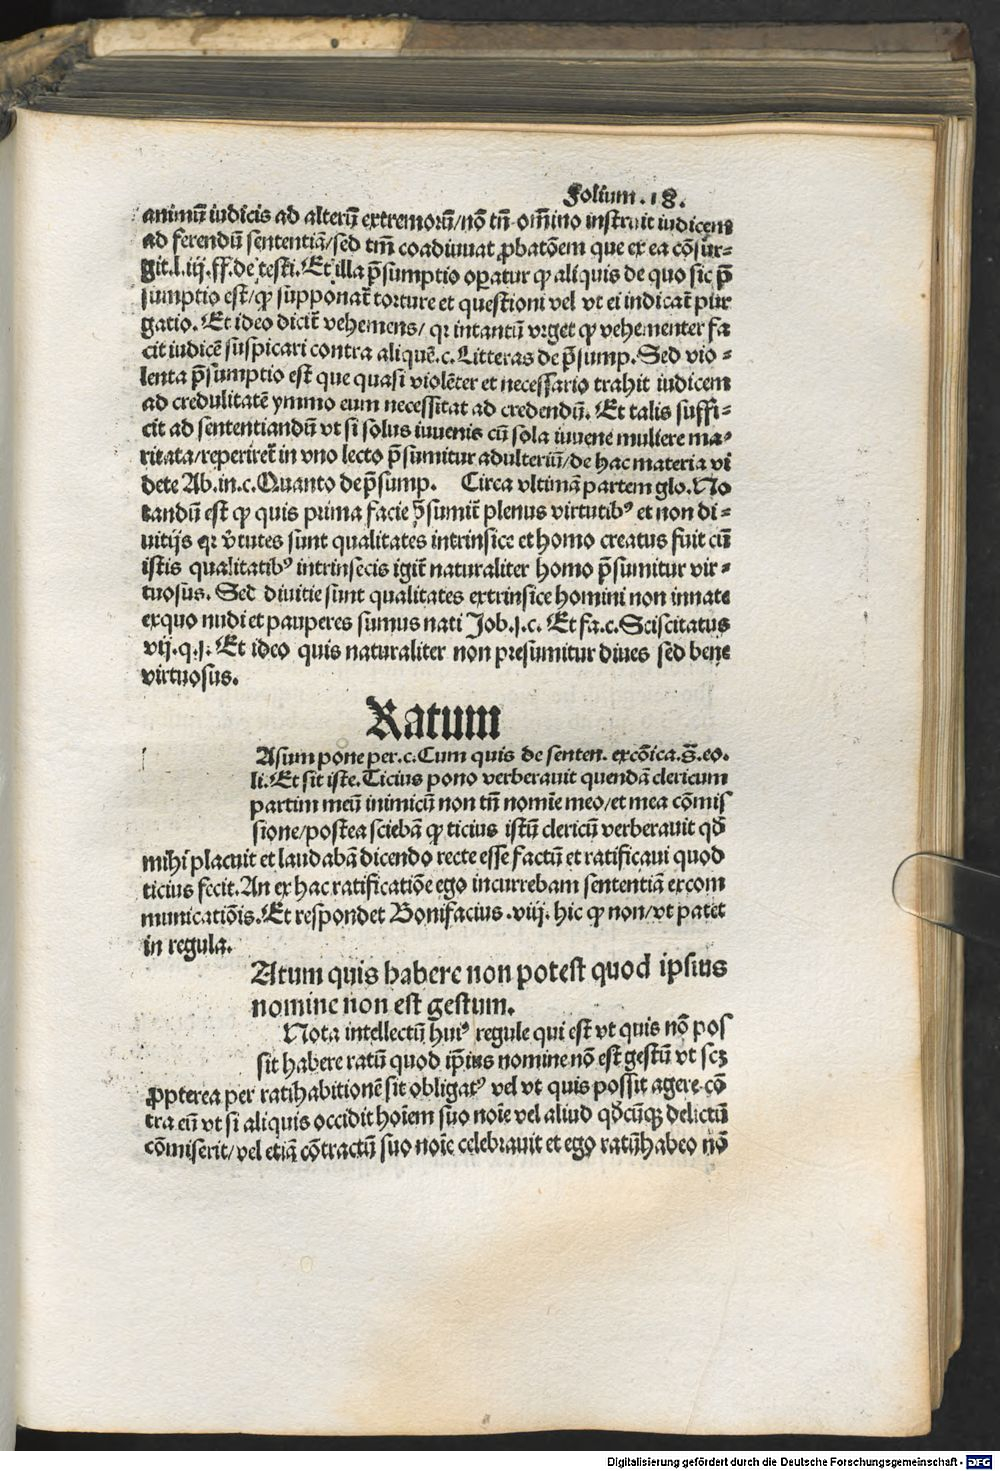 Folium .18.
animū iudicis ad alterū extremorū/nō tn̄ om̄ino instruit iudicem
ad ferendū sententiā/sed tm̄ coadiuuat ꝓbatōem que ex ea cōsur⸗
git.l.iij.ff.de testi. Et illa p̄sumptio oꝑatur ꝙ aliquis de quo sic p̄
sumptio est/ꝙ supponat̄ torture et questioni vel vt ei indicat̄ pur
gatio. Et ideo dicit̄ vehemens/ qꝛ intantū vrget ꝙ vehementer fa
cit iudicē suspicari contra aliquē.c. Litteras de p̄sump. Sed vio⸗
lenta p̄sumptio est que quasi violēter et necessario trahit iudicem
ad credulitatē ymmo eum necessitat ad credendū. Et talis suffi⸗
cit ad sententiandū vt si solus iuuenis cū sola iuuene muliere ma⸗
ritata/reperiret̄ in vno lecto p̄sumitur adulteriū/de hac materia vi
dete Ab.in.c.Quanto de p̄sump. Circa vltimā partem glo. No
tandū est ꝙ quis prima facie p̄sumit̄ plenus virtutibꝰ et non di⸗
uitijs qꝛ v̄tutes sunt qualitates intrinsice et homo creatus fuit cū
istis qualitatibꝰ intrinsecis igit̄ naturaliter homo p̄sumitur vir⸗
tuosus. Sed diuitie sunt qualitates extrinsice homini non innate
exquo nudi et pauperes sumus nati Job.j.c. Et fa.c.Sciscitatus
vij.q.j. Et ideo quis naturaliter non presumitur diues sed bene
virtuosus.
Ratum
Asum pone per.c.Cum quis de senten. excōica.s̄.eo.
li. Et sit iste. Ticius pono verberauit quendā clericum
partim meū inimicū non tn̄ nomīe meo/et mea cōmis
sione/postea sciebā ꝙ ticius istū clericū verberauit qd̄
mihi placuit et laudabā dicendo recte esse factū et ratificaui quod
ticius fecit. An ex hac ratificatiōe ego incurrebam sententiā excom
municatiōis. Et respondet Bonifacius .viij. hic ꝙ non/vt patet
in regula.
Atum quis habere non potest quod ipsius
nomine non est gestum.
Nota intellectū huiꝰ regule qui est vt quis nō pos
sit habere ratū quod ip̄ius nomine nō est gestū vt scꝫ
ꝓpterea per ratihabitionē sit obligatꝰ vel vt quis possit agere cō
tra eū vt si aliquis occidit hoīem suo noīe vel aliud qd̄cūqꝫ delictū
cōmiserit/vel etiā cōtractū suo noīe celebrauit et ego ratūhabeo nō
Digitalisierung gefördert durch die Deutsche Forschungsgemeinschaft - DFG